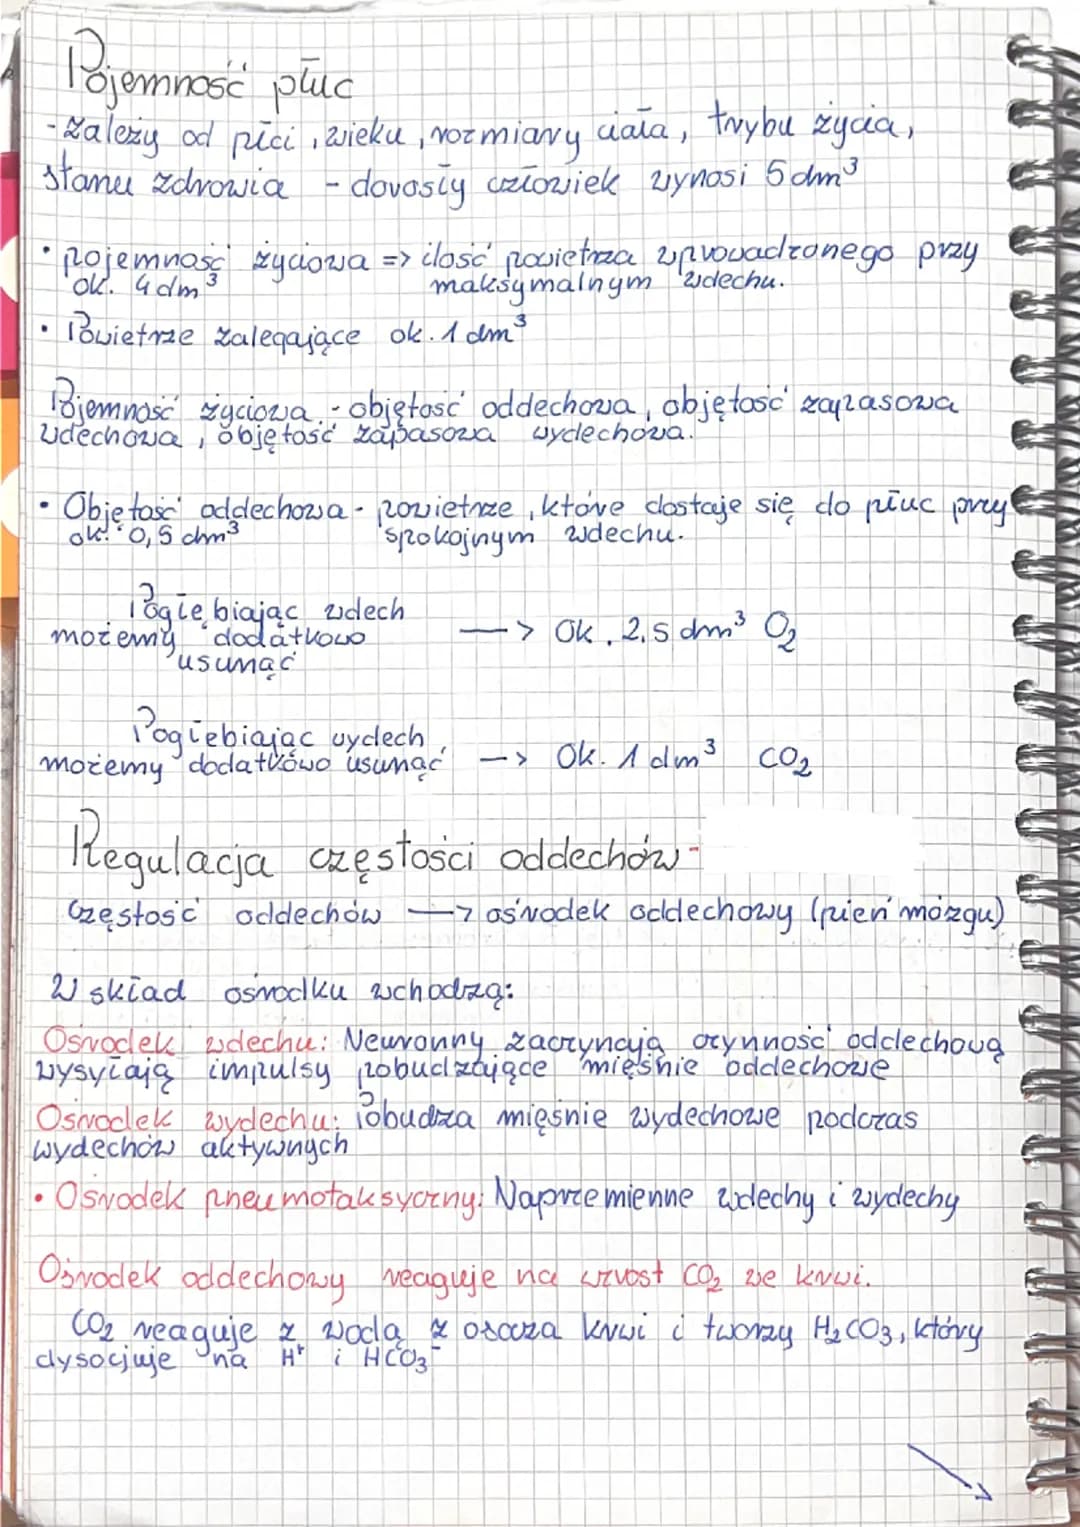 Pojemność płuc
- zależy od płci, wieku, rozmiary ciała, trybu życia,
stanu zdrowia - dorosły człowiek wynosi 5 dm³
• pojemność życiowa => ilość powietrza wprowadzonego przy
ok. 4 dm³ maksymalnym wdechu.
• Powietrze zalegające ok. 1 dm³
Pojemność życiowa - objętość oddechowa, objętość zapasowa
wdechowa, objętość zapasowa wydechowa.
• Objętość oddechowa - powietrze, które dostaje się do płuc przy
ok. 0,5 dm³ spokojnym wdechu.
Pogłębiając wdech
możemy dodatkowo —> Ok. 2,5 dm³ O₂
usunąć
Pogłebiając wydech
możemy dodatkowo usunąć —> Ok. 1 dm³ CO₂
Regulacja częstości oddechów -
Częstość oddechów —> ośrodek oddechowy (pień mózgu)
W skład ośrodku wchodzą:
Ośrodek wdechu: Neuronny zaczynają czynność oddechową
wysyłają impulsy pobudzające mięśnie oddechowe
Ośrodek wydechu: Pobudza mięśnie wydechowe podczas
wydechów aktywnych
• Ośrodek pneumotaksyczny: Naprzemienne wdechy i wydechy
Ośrodek oddechowy reaguje na wzrost CO₂ we krwi.
CO₂ reaguje z wodą z osocza krwi i tworzy H₂CO₃, który
dysocjuje na H⁺ i HCO₃⁻